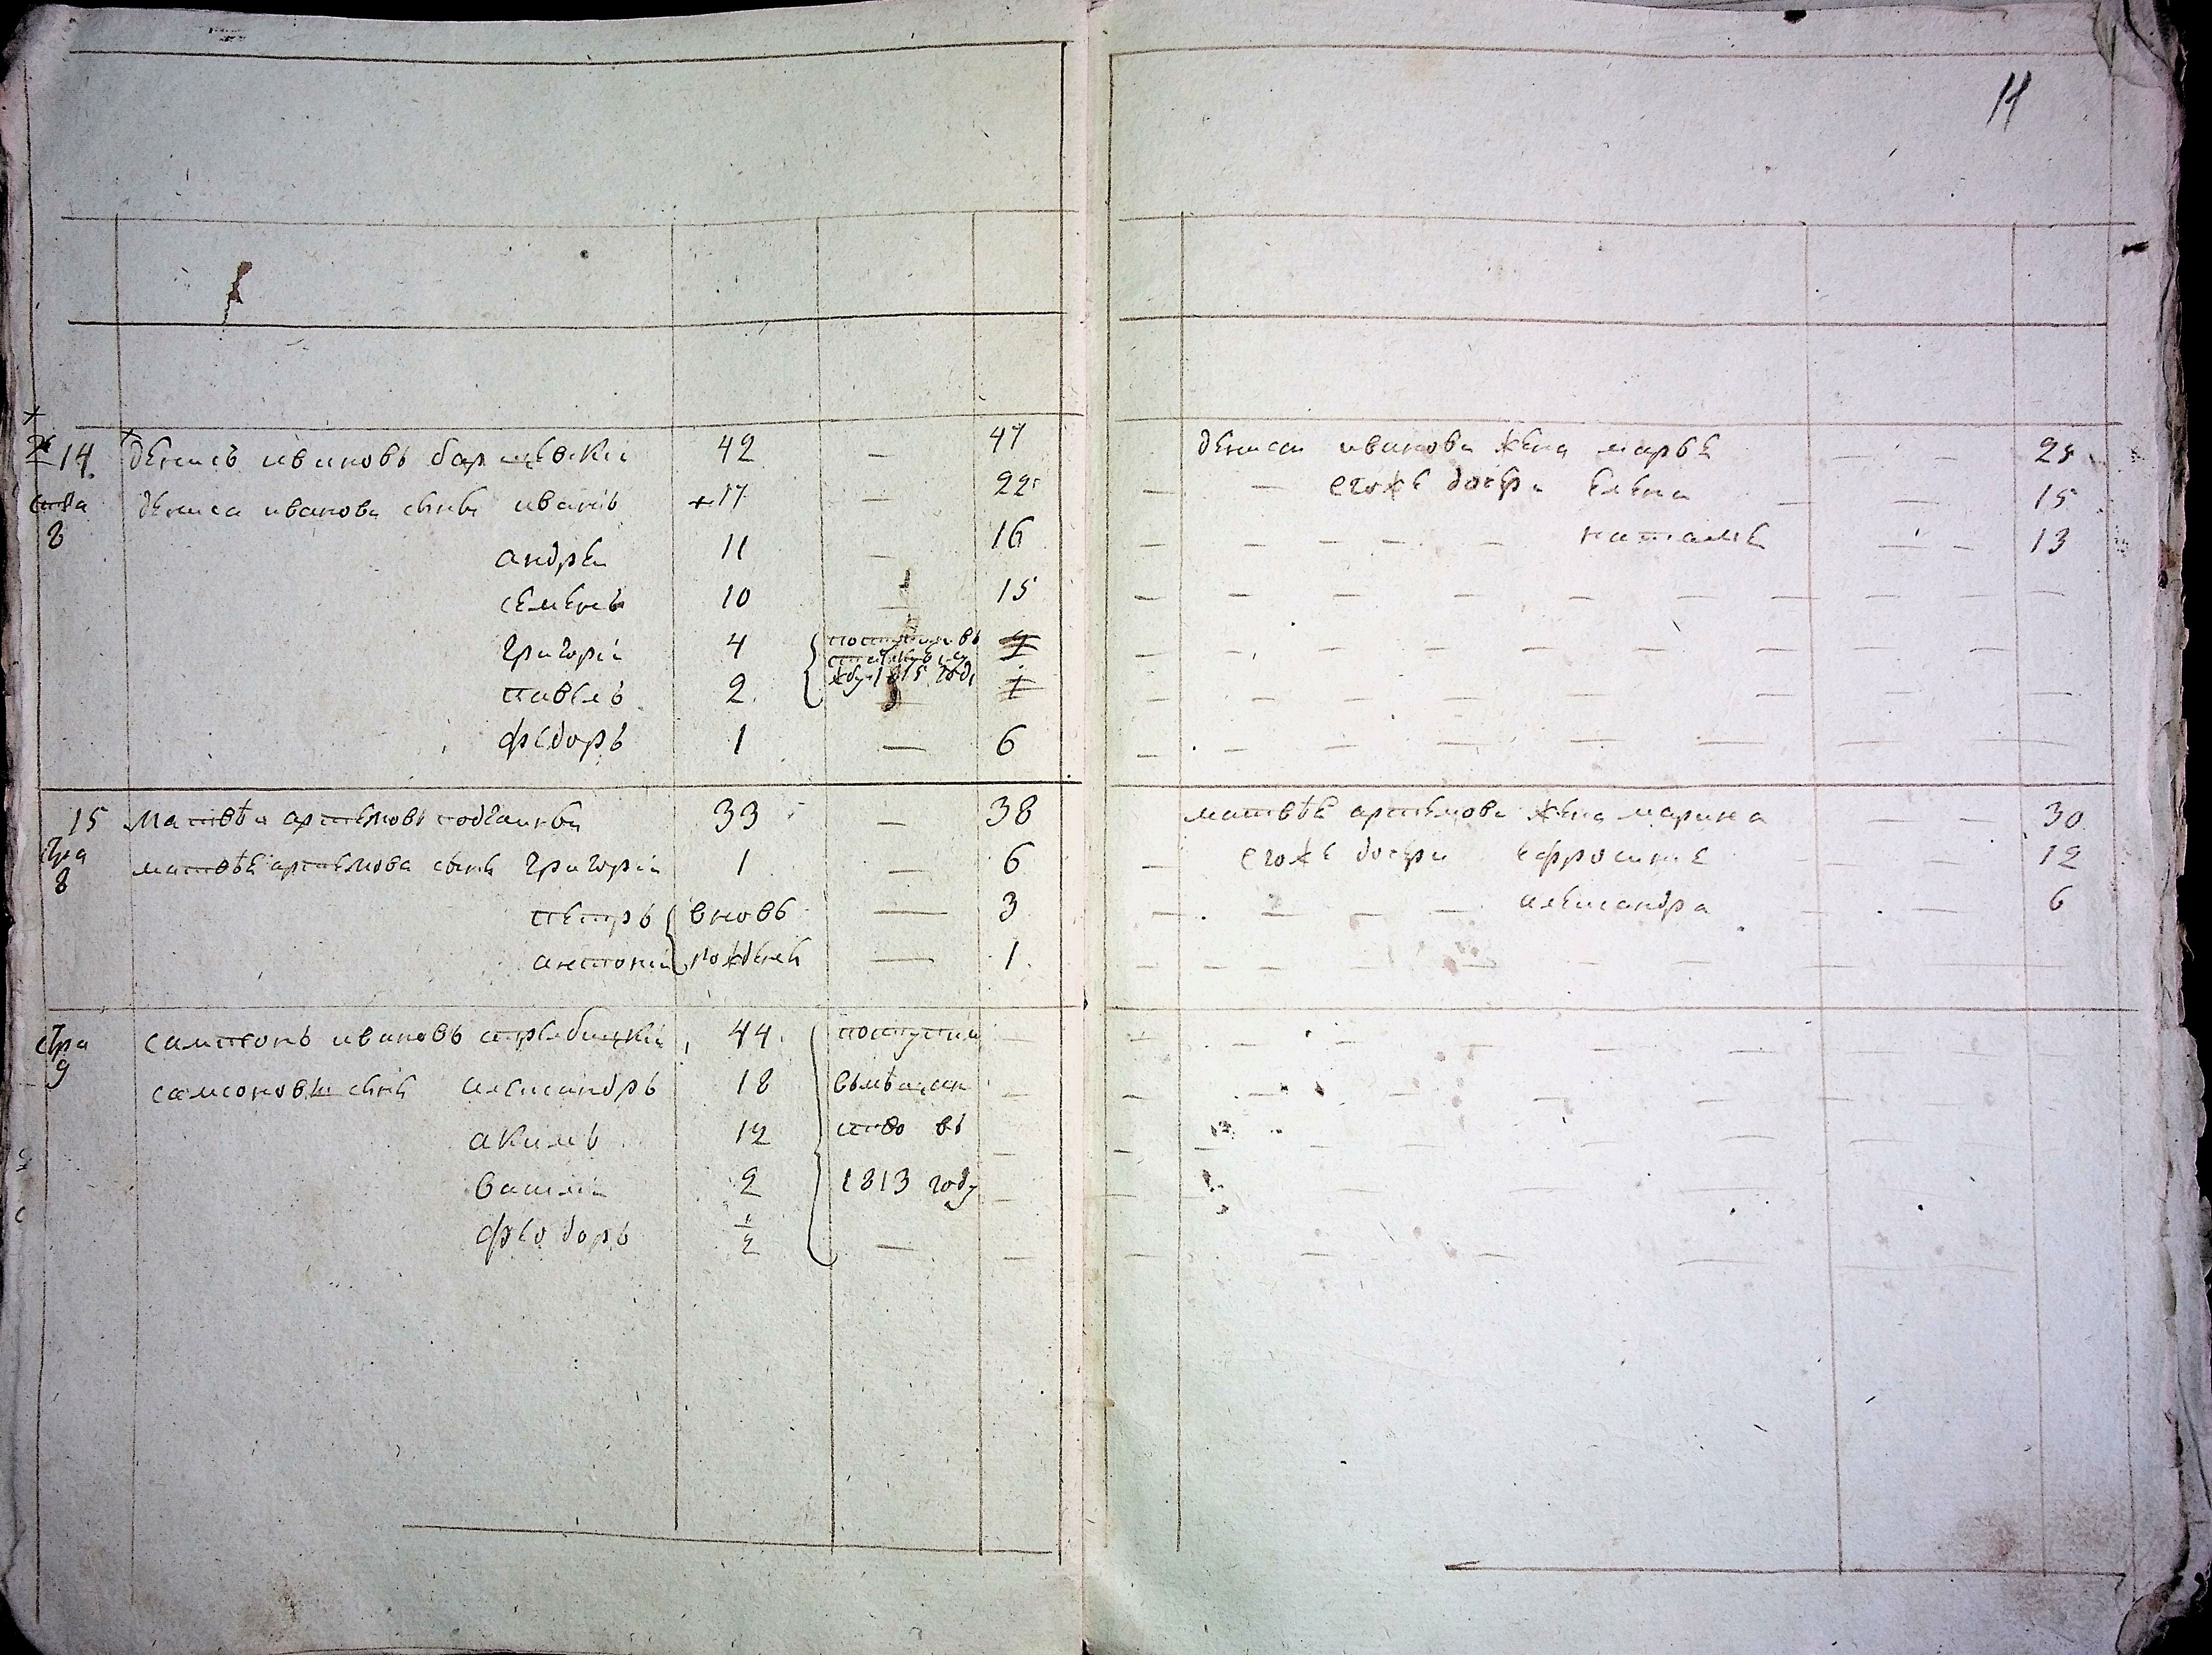 11
14. Денисъ ивановъ 42 — 47
Дениса иванова сынъ иванъ +17 — 22
8
андрей 11 — 16
семенъ 10 — 15
григорій 4
павелъ 2
1815 году
федоръ 1 — 6
15 Матвѣй артемовъ 33 — 38
8
матвѣя артемова сынъ григорій 1 — 6
петръ вновь — 3
антоній рожденъ — 1
стра 9
самсонъ ивановъ 44 поступилъ
самсоновы сыны александръ 18 вмѣщан
акимъ 12 ство въ
василій 2 1813 году
феодоръ 1/2 —
Дениса иванова жена марья 25
егоже дочери елена 15
наталья 13
матвѣя артемова жена марина 30
егоже дочери ефросинья 12
александра 6